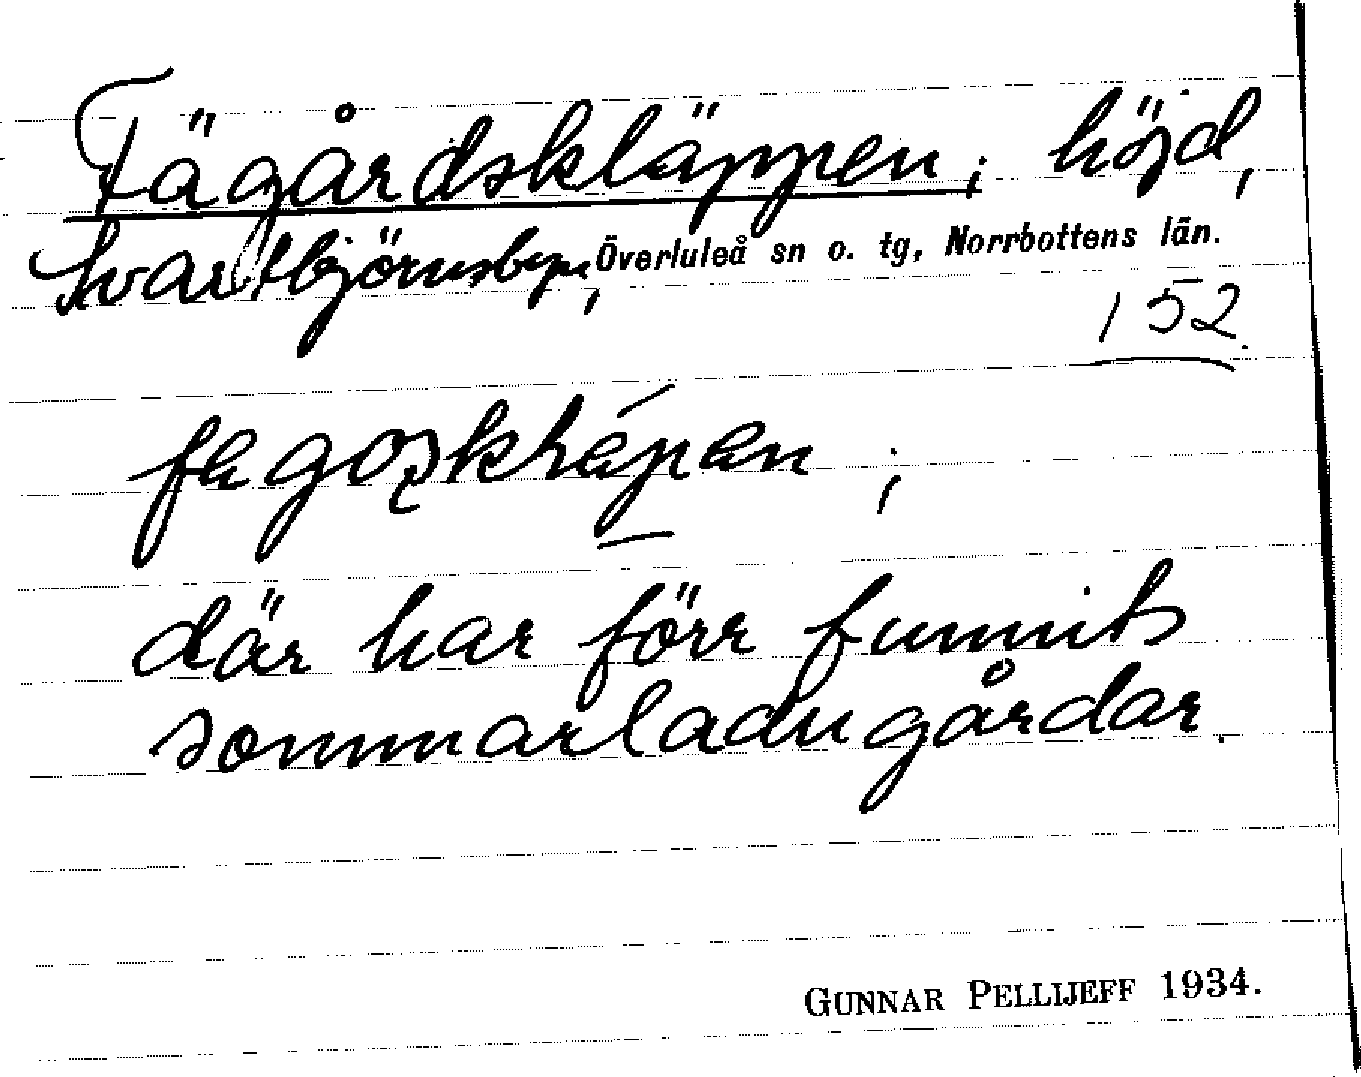 Fägårdskläppen; höjd,
Svartbjörnsbyn, Överluleå sn o. tg, Norrbottens län.
152.
där har förr funnits
sommarladugårdar.
GUNNAR PELLIJEFF 1934.